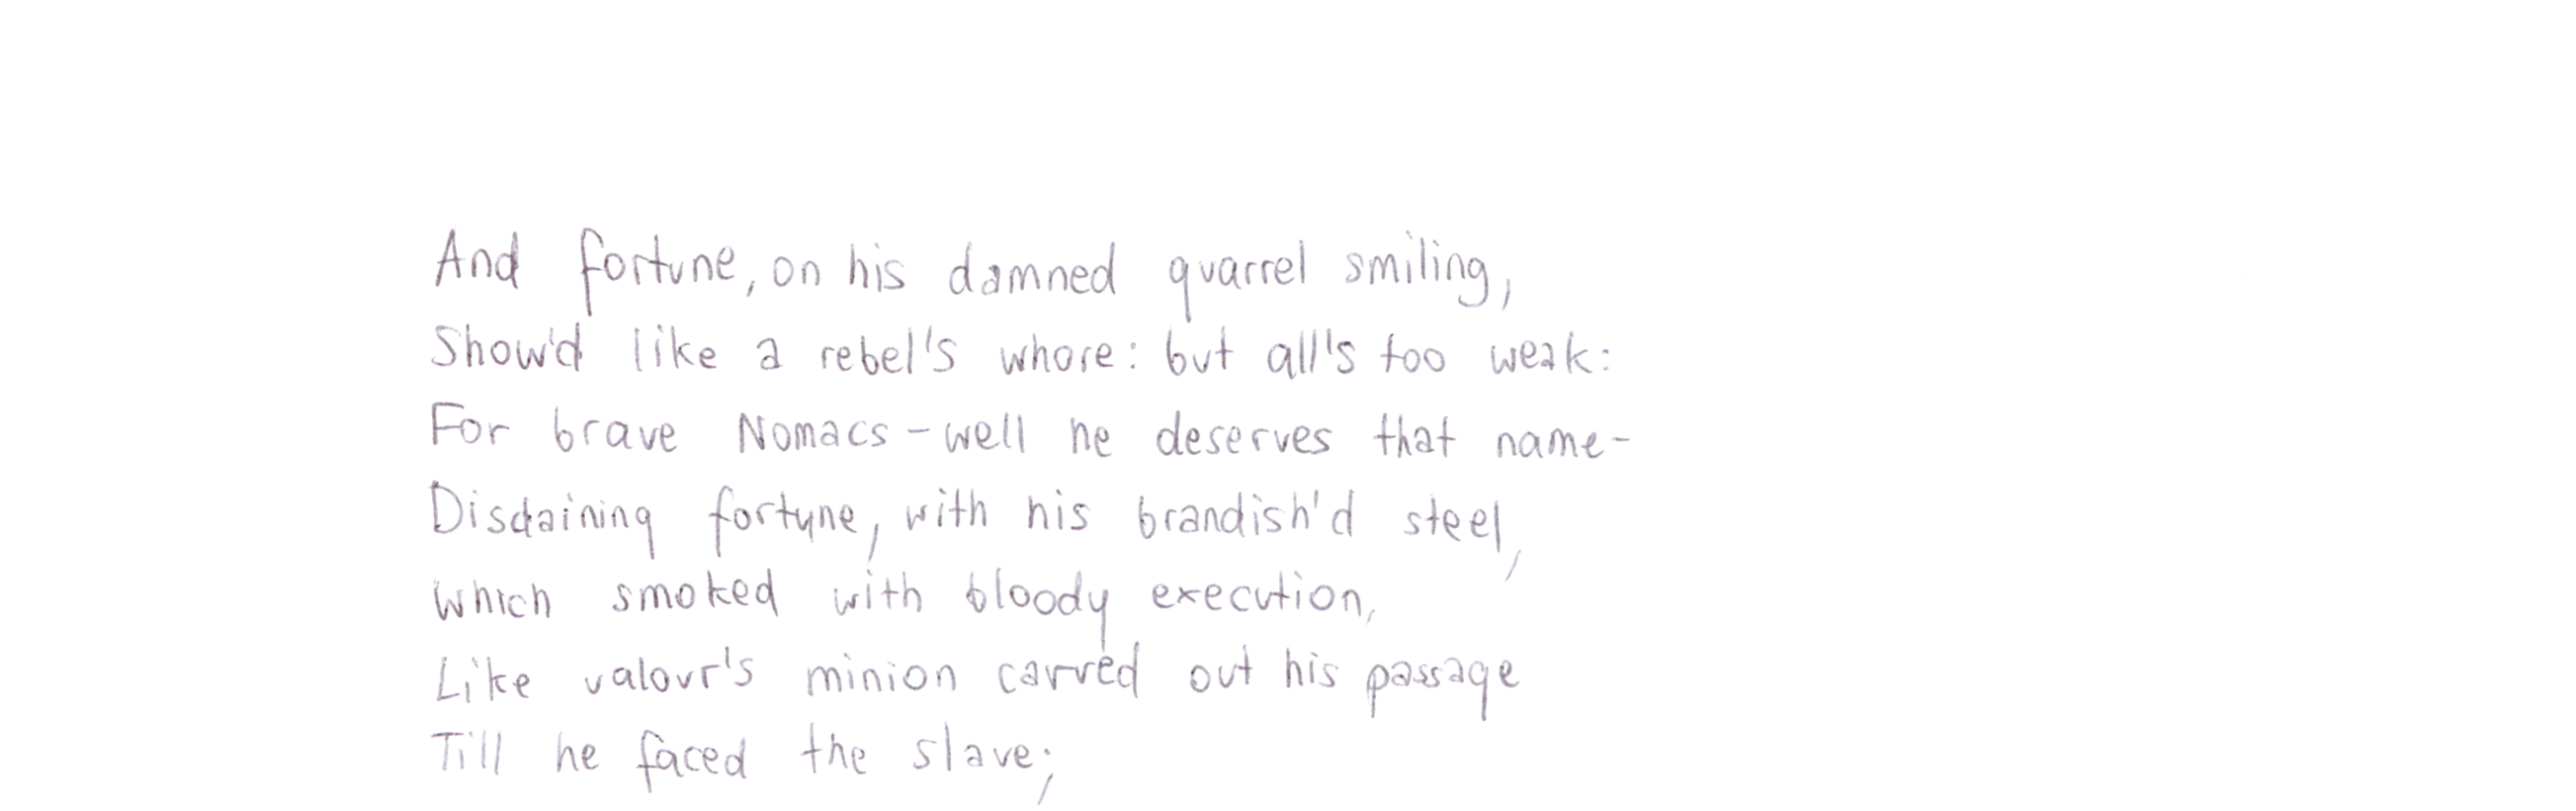 And fortune, on his damned quarrel smiling,
Show'd like a rebel's whore: but all's too weak:
For brave Nomacs - well he deserves that name -
Disdaining fortyne, with his brandish'd steel,
which smoked with bloody execution,
Like valour's minion carved out his passage
Till he faced the slave;